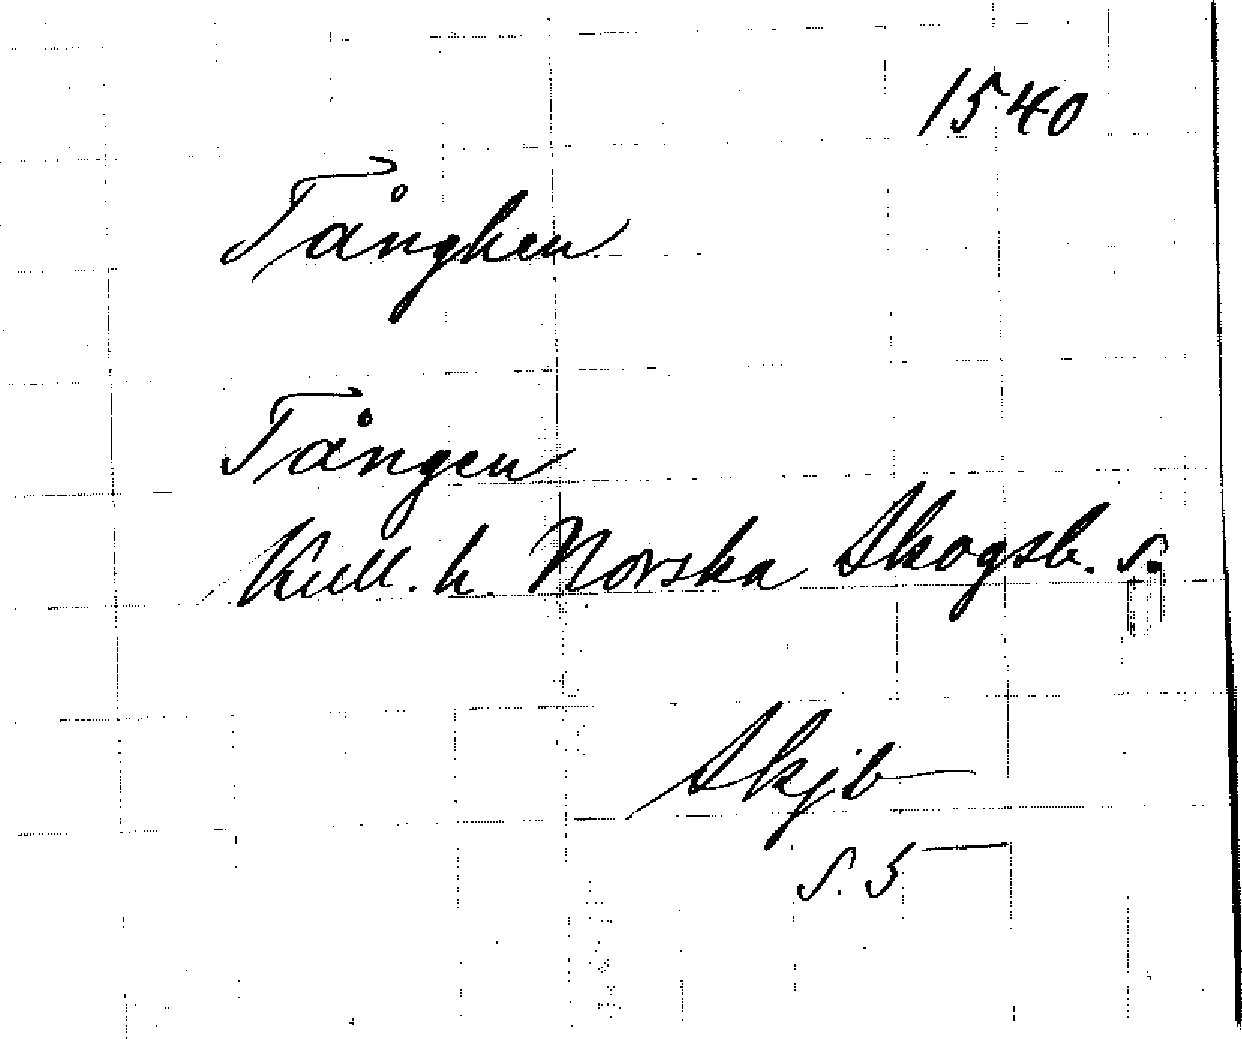 1540
Tångken
Tången
Kull. h. Norska Skogsb. s.
Skjb
s. 5